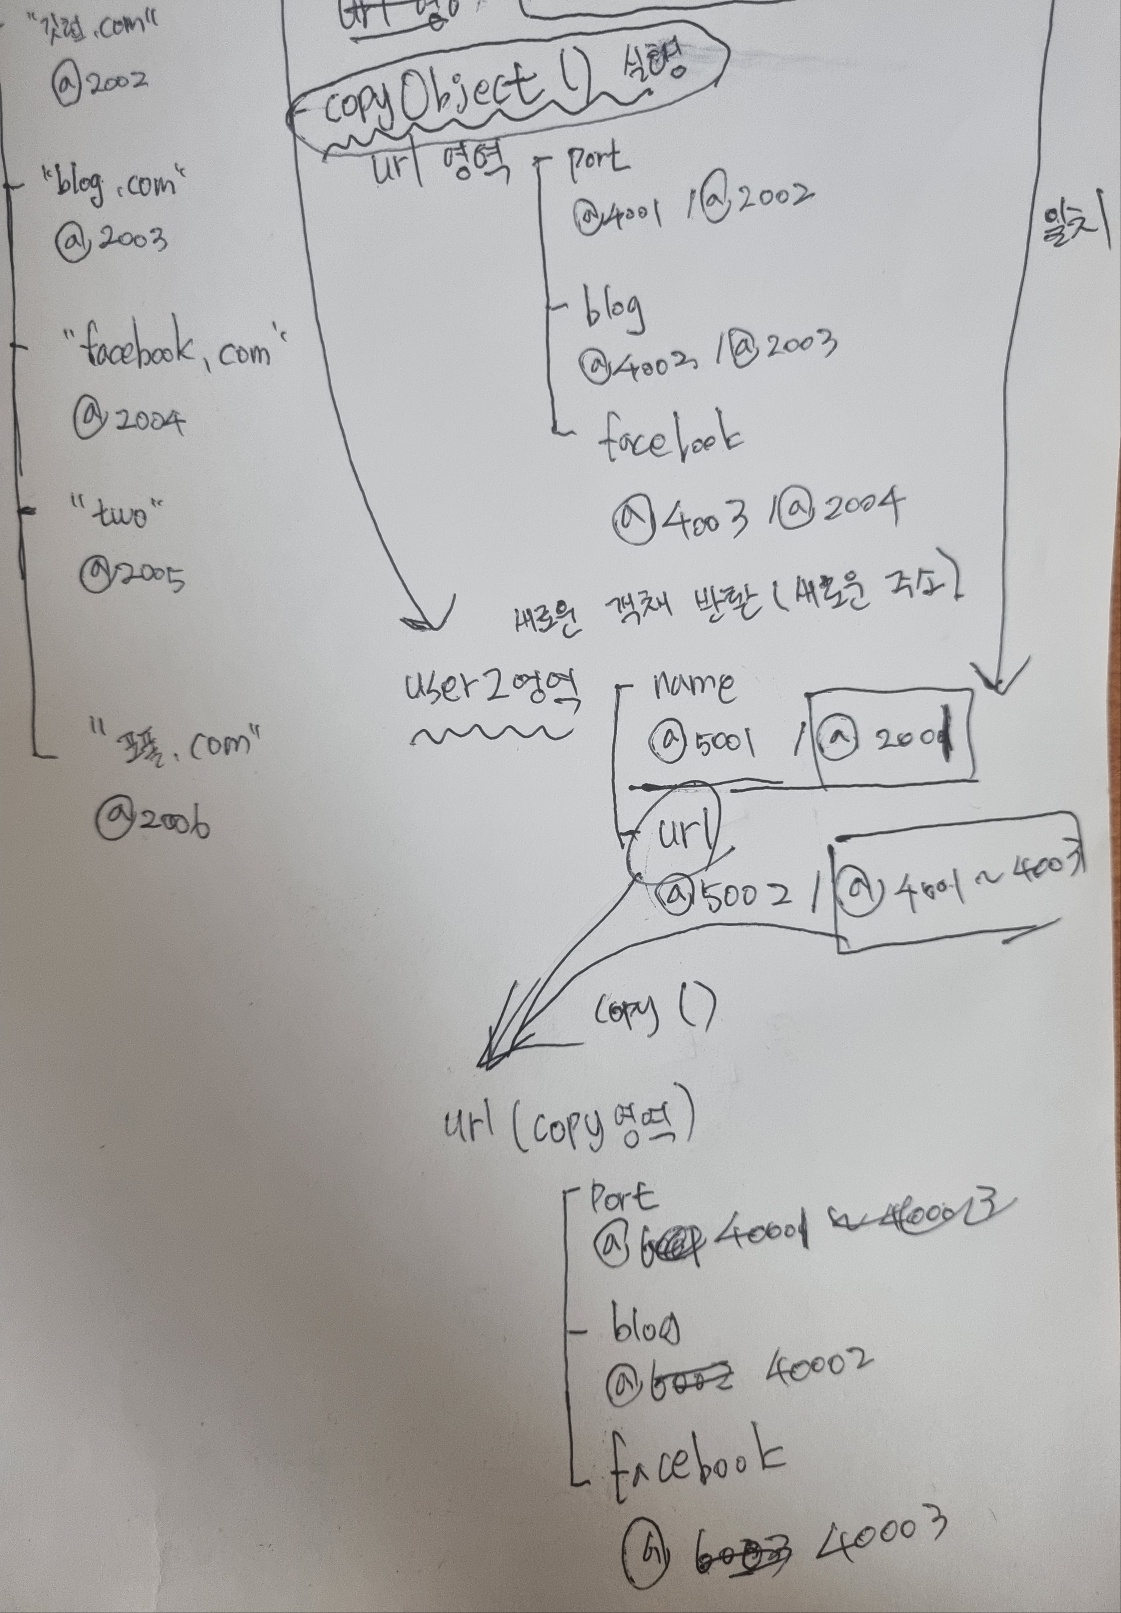 "깃헙.com"
@2002
"blog.com"
@2003
"facebook.com"
@2004
"two"
@2005
"포폴.com"
@2006
url 영역
copyObject() 실행
url 영역
port
@4001 / @2002
blog
@4002 / @2003
facebook
@4003 / @2004
일치
새로운 객체 반환 (새로운 주소)
user2영역
name
@5001 / @2001
url
@5002 / @4001 ~ 4003
copy ()
url (copy영역)
port
@ 40001 ~ 40003
blog
@6002 40002
facebook
@ 6003 40003